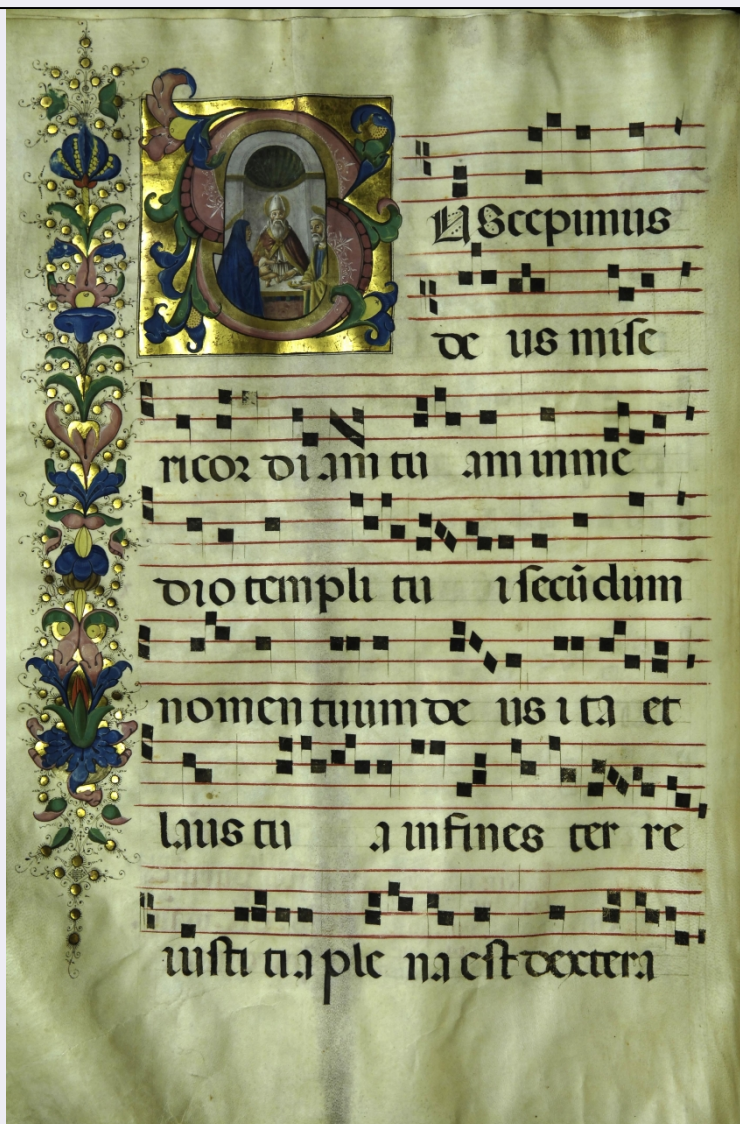 SUScepimus
de us mise
ricor diam tu am in me
dio templi tu i secūdum
nomen tuum de us i ta et
laus tu a in fines ter re
iusti tia ple na est dextera